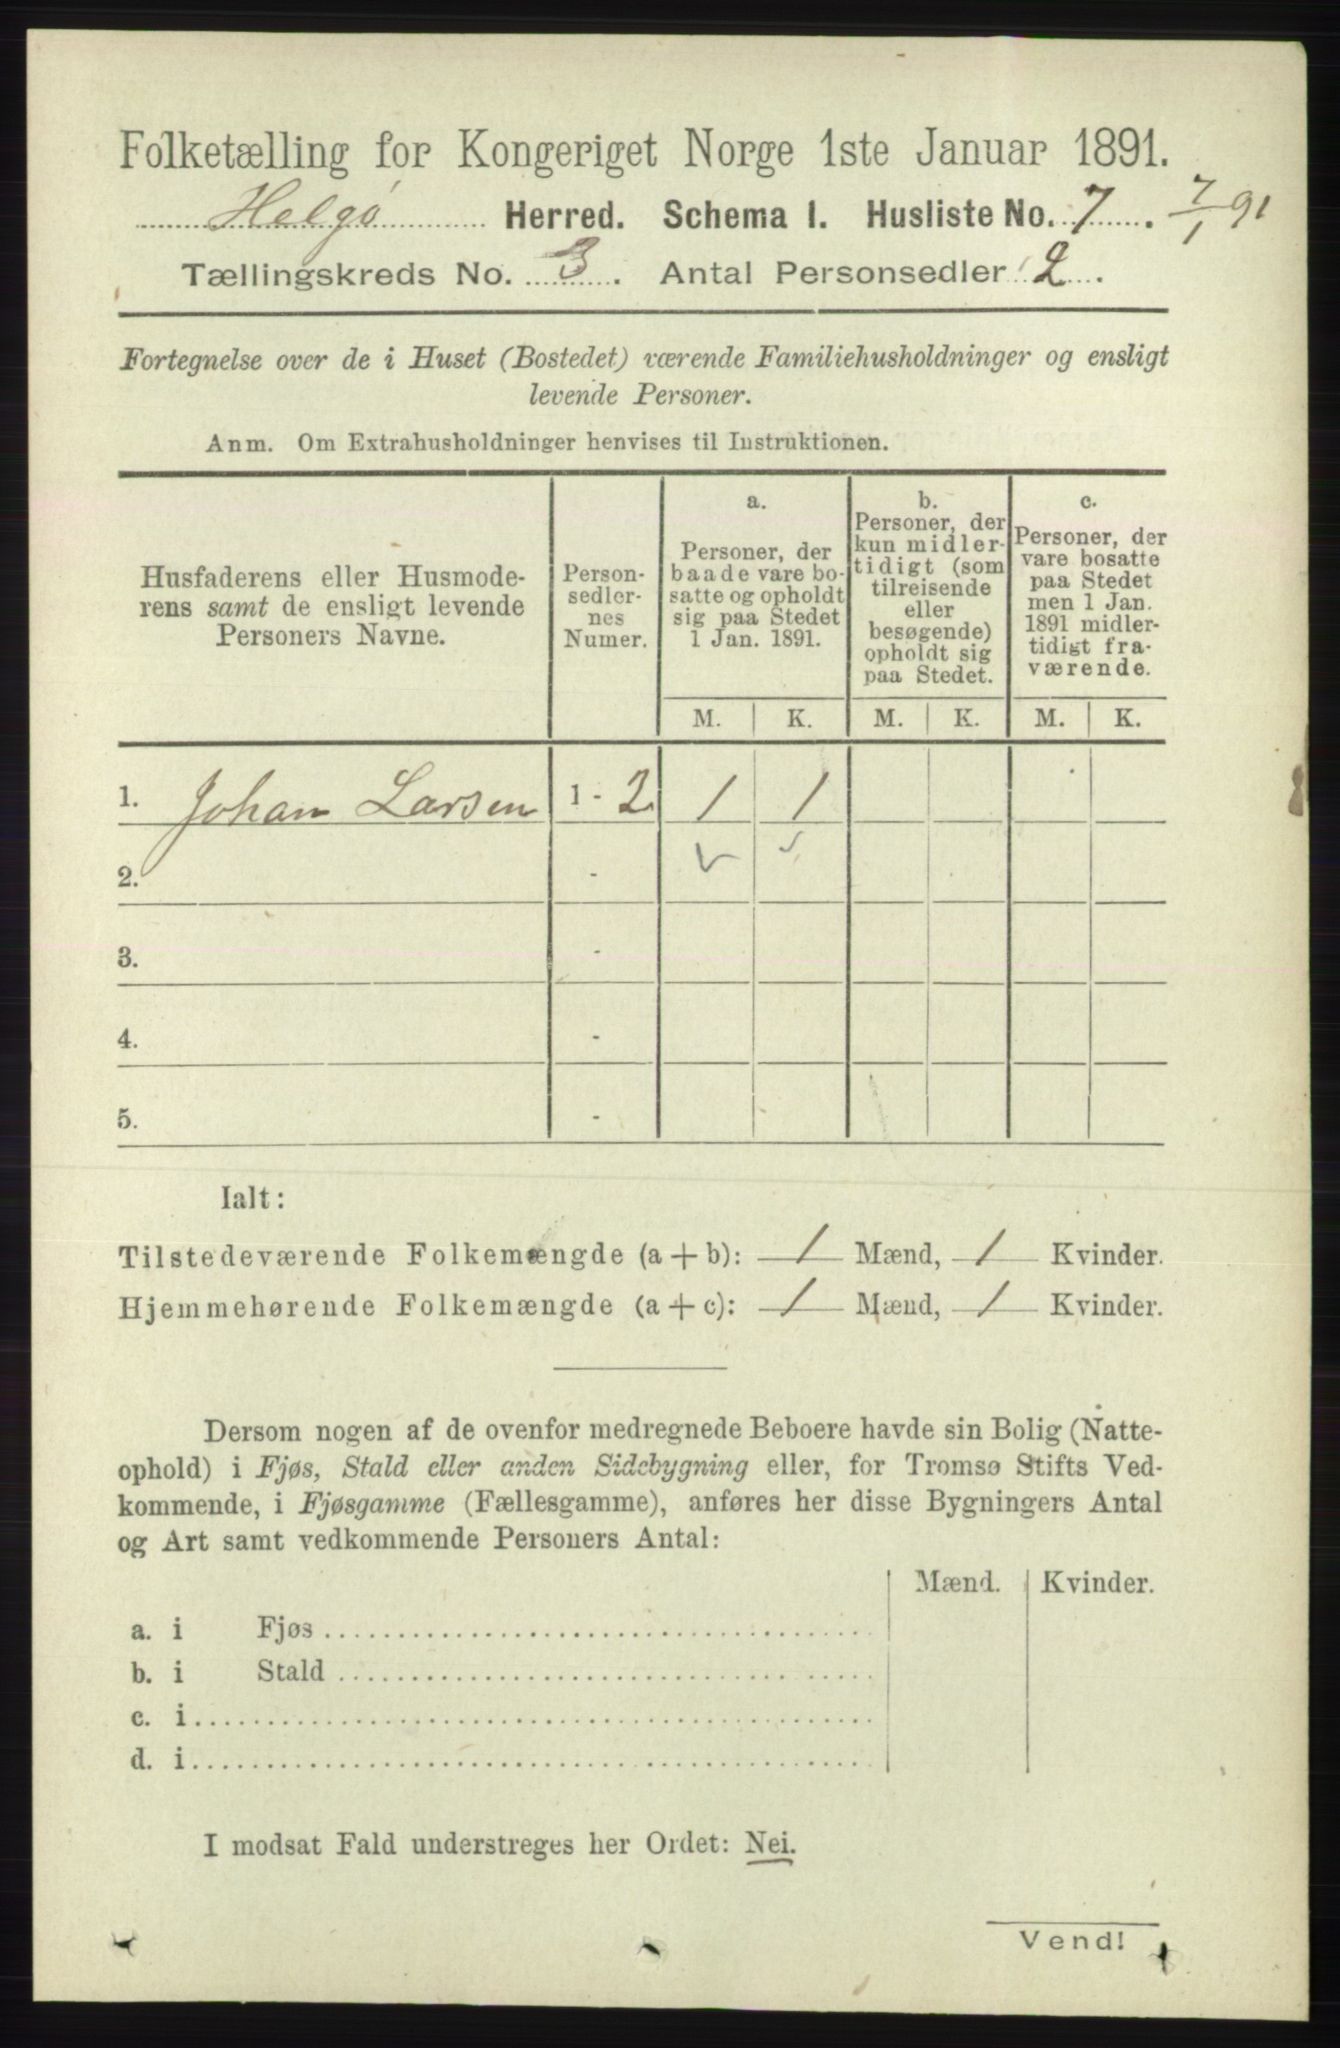 Folketælling for Kongeriget Norge 1ste Januar 1891.
Helgø Herred. Schema 1. Husliste No. 7. 7/1 91
Tællingskreds No. 3. Antal Personsedler 2.
Fortegnelse over de i Huset (Bostedet) værende Familiehusholdninger og ensligt
levende Personer.
Anm. Om Extrahusholdninger henvises til Instruktionen.
Husfaderens eller Husmode-
rens samt de ensligt levende
Personers Navne.
Person-
sedler-
nes
Numer.
a.
Personer, der
baade vare bo-
satte og opholdt
sig paa Stedet
1 Jan. 1891.
b.
Personer, der
kun midler-
tidigt (som
tilreisende
eller
besøgende)
opholdt sig
paa Stedet.
c.
Personer, der
vare bosatte
paa Stedet
men 1 Jan.
1891 midler-
tidigt fra-
værende.
M. K. M. K. M. K.
1. Johan Larsen 1 - 2 1 1
2. -
3. -
4. -
5. -
Ialt:
Tilstedeværende Folkemængde (a + b): 1 Mænd, 1 Kvinder.
Hjemmehørende Folkemængde (a + c): 1 Mænd, 1 Kvinder.
Dersom nogen af de ovenfor medregnede Beboere havde sin Bolig (Natte-
ophold) i Fjøs, Stald eller anden Sidebygning eller, for Tromsø Stifts Ved-
kommende, i Fjøsgamme (Fællesgamme), anføres her disse Bygningers Antal
og Art samt vedkommende Personers Antal:
Mænd. Kvinder.
a. i Fjøs
b. i Stald
c. i
d. i
I modsat Fald understreges her Ordet: Nei.
Vend!